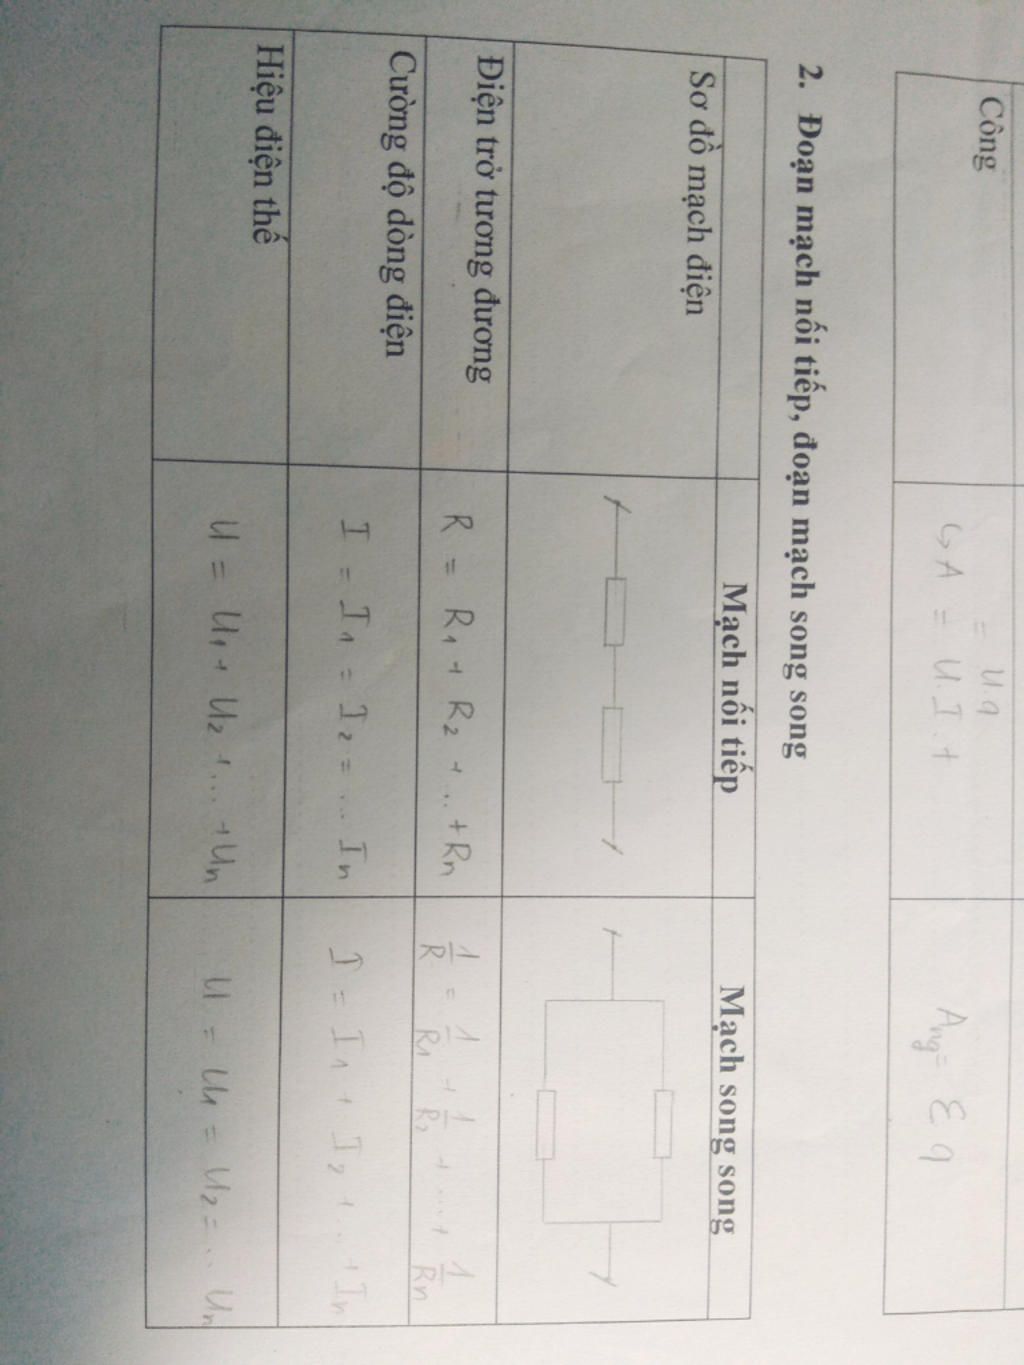 = U.q
Công
↳ A = U.I.t
A_ng = ℰq
2. Đoạn mạch nối tiếp, đoạn mạch song song
Mạch nối tiếp
Mạch song song
Sơ đồ mạch điện
Điện trở tương đương
R = R₁ + R₂ + ... + Rn
1/R = 1/R₁ + 1/R₂ + .... + 1/Rn
Cường độ dòng điện
I = I₁ = I₂ = ... In
I = I₁ + I₂ + ... + In
Hiệu điện thế
U = U₁ + U₂ + ... + Un
U = U₁ = U₂ = .. Un